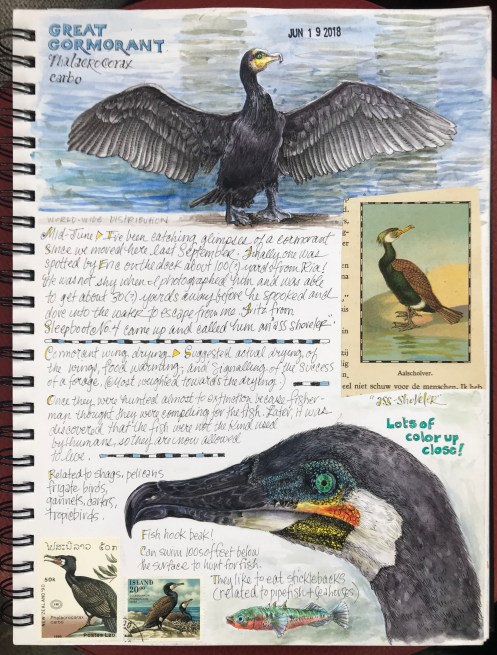 GREAT
CORMORANT
Phalacrocorax
carbo
JUN 19 2018
WORLD-WIDE DISTRIBUTION
Mid-June I've been catching glimpses of a cormorant
since we moved here last September. Finally one was
spotted by Eric on the dock about 100(?) yards from Ria!
He was not shy when I photographed him and was able
to get about 30(?) yards away before he spooked and
dove into the water to escape from me. Fritz from
Sleepboot No. 4 came up and called him an "ass shoveler".
Cormorant wing drying Suggested actual drying of
the wings, food warming, and signalling of the success
of a forage. (Most weighed towards the drying.)
Once they were hunted almost to extinction because fisher-
man thought they were competing for the fish. Later, it was
discovered that the fish were not the kind used
by humans, so they are now allowed
to live.
Related to shags, pelicans
frigate birds,
gannets, darters,
tropicbirds.
Aalscholver.
niet schuw voor de menschen. Ik heb
"ass-shoveler"
Lots of
color up
close!
Fish hook beak!
Can swim 100s of feet below
the surface to hunt for fish.
They like to eat sticklebacks
(related to pipefish + seahorses)
50k
Phalacrocorax
carbo
Postes Lao
ISLAND
20.00